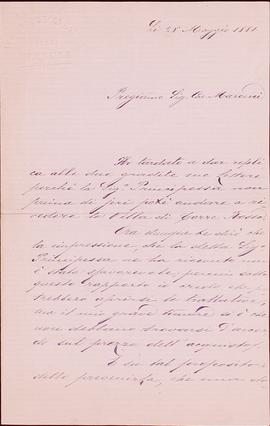 Li 28 Maggio 1881
Pregiatmo Sig. Cav. Marcini
Ho tardato a dar repli
ca alle due gradite sue lettere
perchè la Sig.a Principessa non
prima di jeri potè andare a ri
vedere la Villa di Torre Rossa.
Ora dunque le dirò che
la impressione, che la detta Sig.a
Principessa ne ha ricevuto non
è stata sfavorevole, perciò sotto
questo rapporto io credo che po
trebbero aprirsi le trattative,
ma il mio grave timore si è che
non debbano trovarsi d'accor
do sul prezzo dell'acquisto.
E su tal proposito
debbo prevenirla, che una